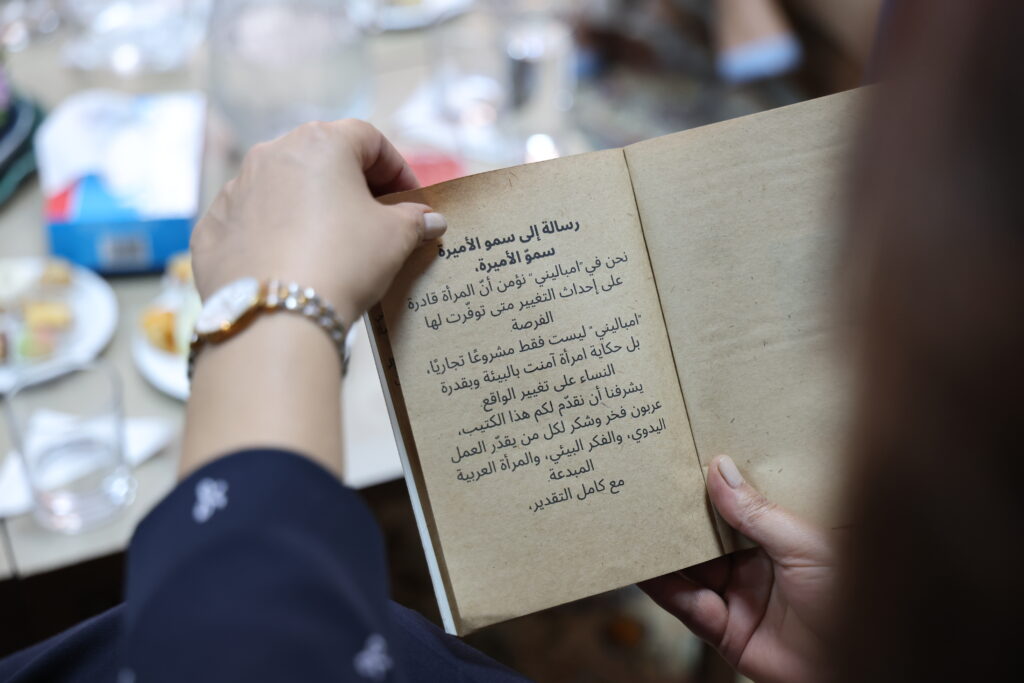 رسالة إلى سمو الأميرة
سموّ الأميرة،
نحن في"امباليني" نؤمن أنّ المرأة قادرة
على إحداث التغيير متى توفّرت لها
الفرصة
"امباليني" ليست فقط مشروعًا تجاريًا،
بل حكاية امرأة آمنت بالبيئة وبقدرة
النساء على تغيير الواقع
يشرفنا أن نقدّم لكم هذا الكتيب،
عربون فخر وشكر لكل من يقدّر العمل
اليدوي، والفكر البيئي، والمرأة العربية
المبدعة
مع كامل التقدير،